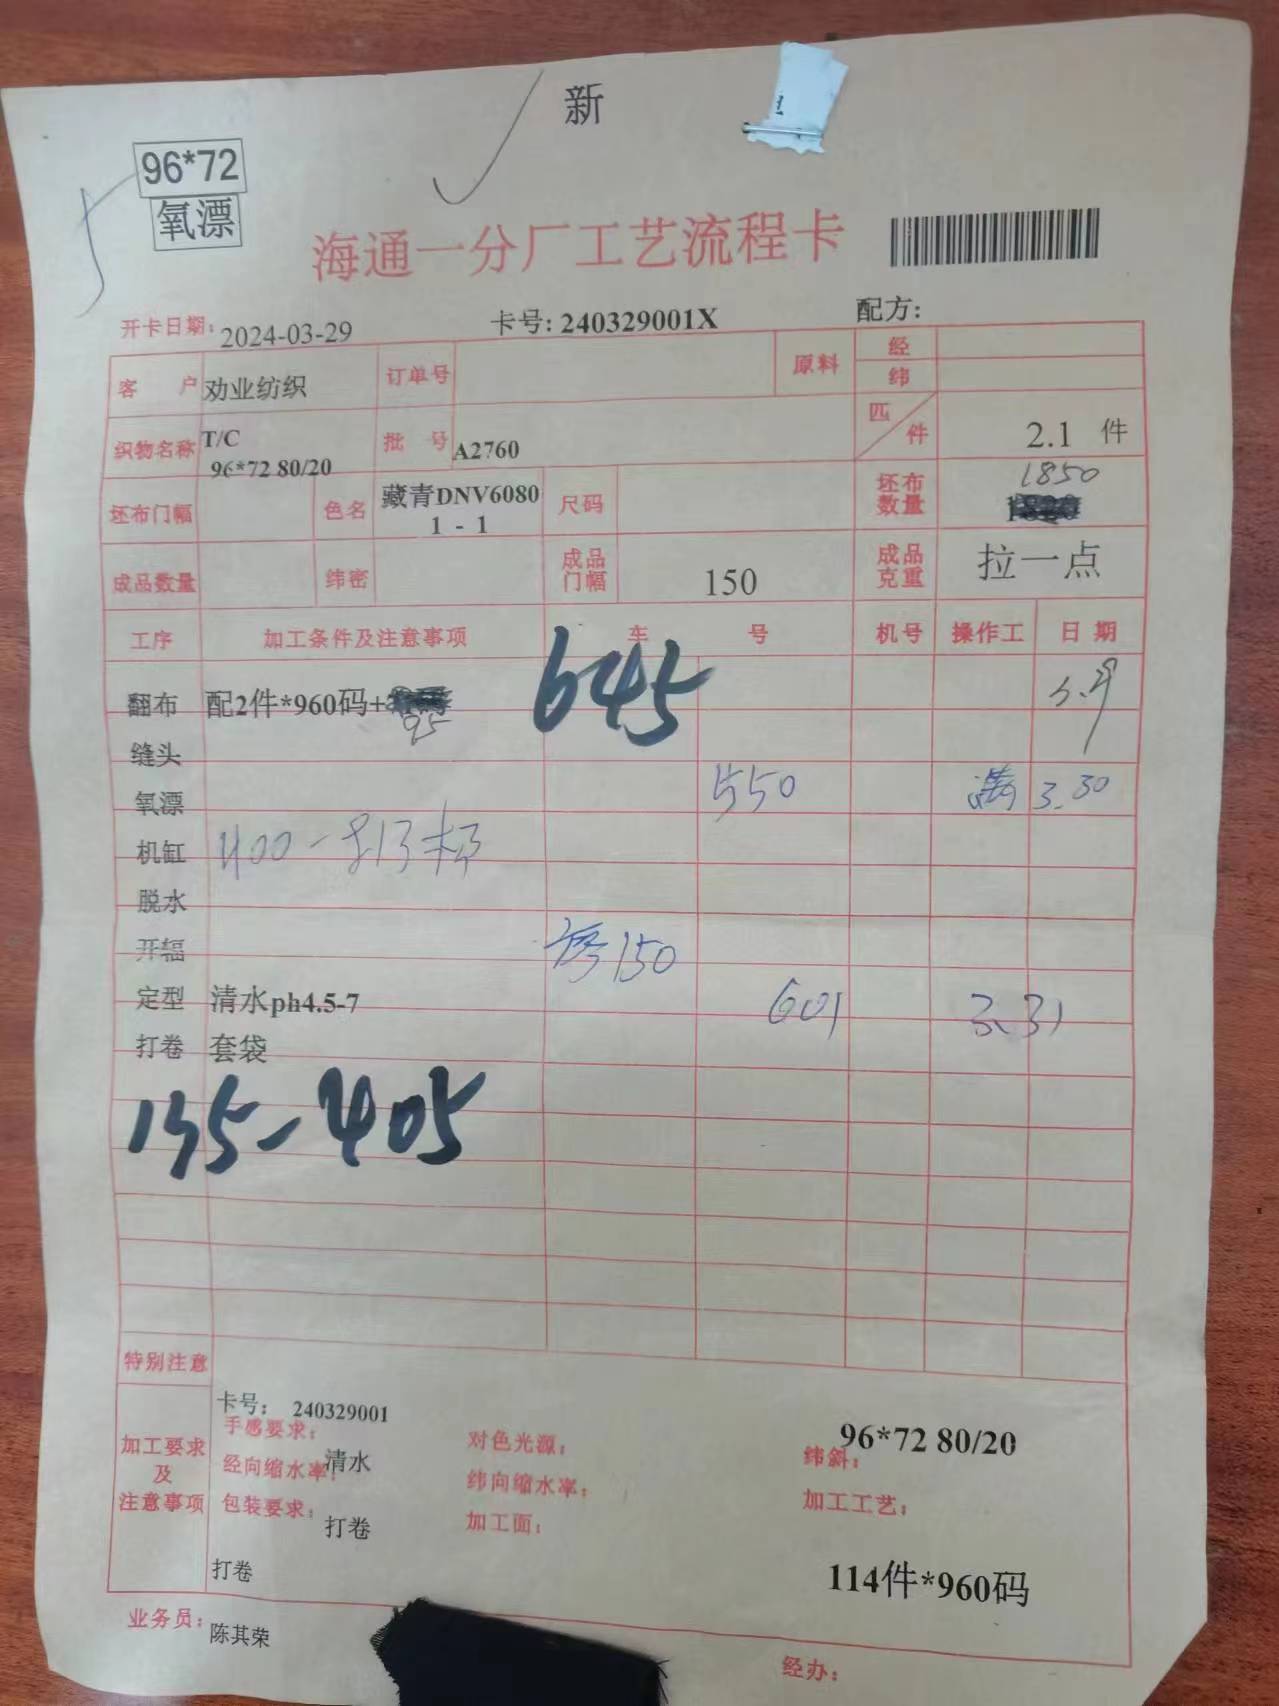 新
96*72
氧漂
海通一分厂工艺流程卡
开卡日期: 2024-03-29 卡号: 240329001X 配方:
客户 劝业纺织 订单号 原料 经
纬
织物名称 T/C 96*72 80/20 批号 A2760 匹 件 2.1 件
坯布门幅 色名 藏青DNV6080 1 - 1 尺码 坯布数量 1850
成品数量 纬密 成品门幅 150 成品克重 拉一点
工序 加工条件及注意事项 车号 机号 操作工 日期
翻布 配2件*960码+ 95 645
缝头
氧漂 550 满 3.30
机缸
脱水
开辐 150
定型 清水ph4.5-7 601 3.31
打卷 套袋
135-405
特别注意
加工要求及注意事项
卡号: 240329001
手感要求: 清水 对色光源: 纬斜: 96*72 80/20
经向缩水率: 纬向缩水率: 加工工艺:
包装要求: 打卷 加工面:
打卷 114件*960码
业务员: 陈其荣 经办: